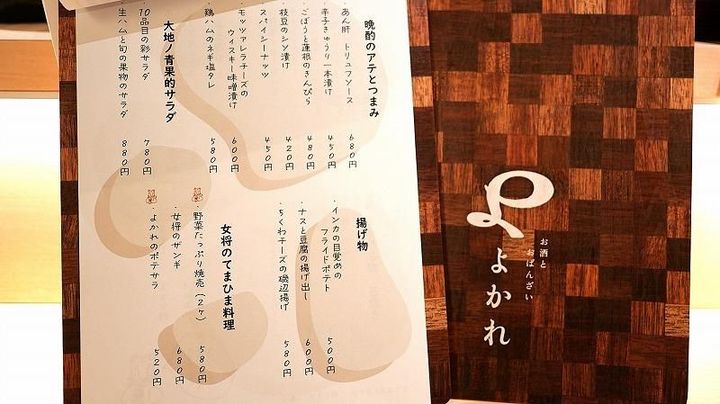 晩酌のアテとつまみ
あん肝 トリュフソース 680円
辛子きゅうり一本漬け 450円
ごぼうと蓮根のきんぴら 480円
枝豆のシソ漬け 420円
スパイシーナッツ 450円
モッツァレラチーズの
ウィスキー味噌漬け 600円
鶏ハムのネギ塩タレ 580円
大地ノ青果的サラダ
10品目の彩サラダ 780円
生ハムと旬の果物のサラダ 880円
揚げ物
・インカの目覚めの
フライドポテト 500円
・ナスと豆腐の揚げ出し 600円
・ちくわチーズの磯辺揚げ 580円
女将のてまひま料理
・野菜たっぷり焼売(2ヶ) 580円
・女将のザンギ 680円
・よかれのポテサラ 520円
お酒と
おばんざい
よかれ